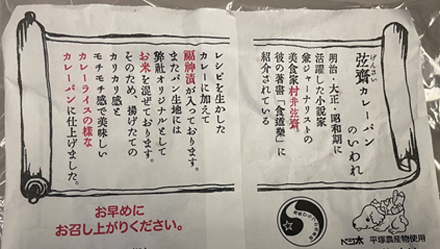 弦齋カレーパン
げんさい
のいわれ
明治・大正・昭和期に
活躍した小説家
兼ジャーナリストの
美食家村井弦齋。
彼の著書「食道楽」に
紹介されている
レシピを生かした
カレーに加えて
福神漬が入っております。
またパン生地には
弊社オリジナルとして
お米を混ぜております。
そのため、揚げたての
カリカリ感と
モチモチ感で美味しい
カレーライスの様な
カレーパンに仕上げました。
お早めに
お召し上がりください。
ベジ太
平塚農産物使用